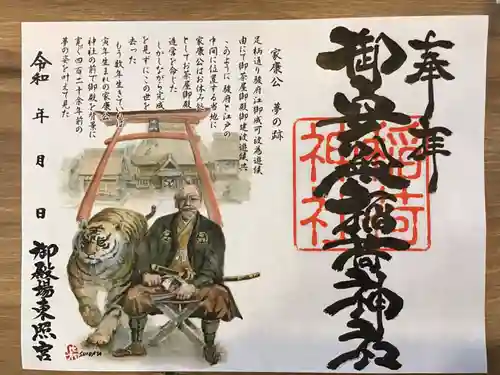 奉拝
御殿稲荷神社
稲荷神社
家康公 夢の跡
足柄通り駿府江御成可被為遊候
由にて御茶屋御殿御建被遊候共
このように駿府と江戸の
中間に位置する当地に
家康公はお休み処
としてお茶屋御殿
造営を命じた
しかしながら完成
を見ずにこの世を
去った
もう数年生きていれば
寅年生まれの家康公
神社の前で御殿を背景に
寛ぐ四百二十余年前の
夢の姿を叶えて見た
令和 年 月 日
御殿場東照宮